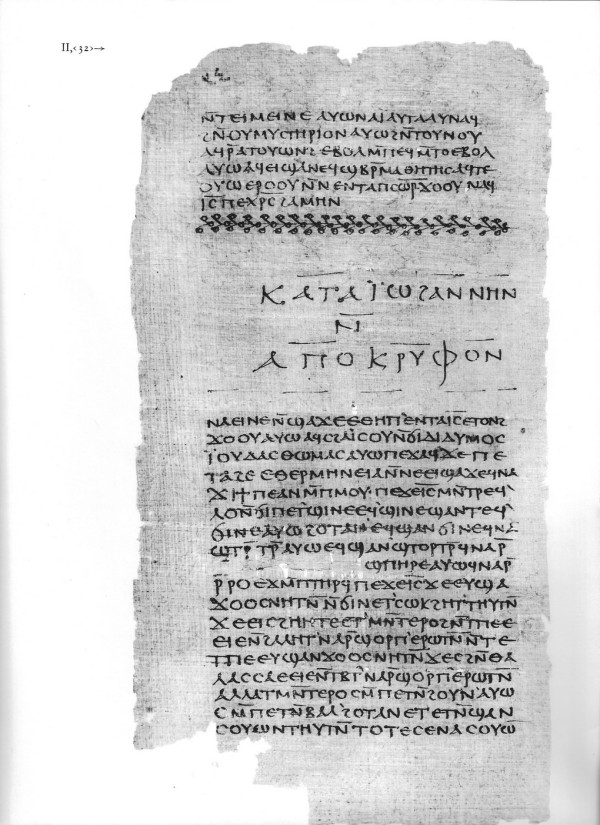 II,<32>→
ⲛ̅ⲧⲉⲓⲙⲉⲓⲛⲉ ⲁⲩⲱ ⲛⲁⲓ ⲁⲩⲧⲁⲁⲩ ⲛⲁϥ
ϩⲛ̅ ⲟⲩⲙⲩⲥⲧⲏⲣⲓⲟⲛ ⲁⲩⲱ ϩⲛ̅ ⲧⲟⲩⲛⲟⲩ
ⲁϥⲣ̅ⲁⲧⲟⲩⲱⲛϩ ⲉⲃⲟⲗ ⲙ̅ⲡⲉϥⲙ̅ⲧⲟ ⲉⲃⲟⲗ
ⲁⲩⲱ ⲁϥⲉⲓ ϣⲁ ⲛⲉϥϣⲃⲣ̅ⲙⲁⲑⲏⲧⲏⲥ ⲁϥⲧⲉ
ⲟⲩⲱ ⲉⲣⲟⲟⲩ ⲛ̅ⲛⲉⲛⲧⲁⲡⲥⲱ̅ⲣ̅ ϫⲟⲟⲩ ⲛⲁϥ
ⲓ̅ⲥ̅ ⲡⲉⲭ̅ⲣ̅ⲥ̅ ϩⲁⲙⲏⲛ
ⲕⲁⲧⲁ ⲓ̈ⲱϩⲁⲛⲛⲏⲛ
ⲛ̅
ⲁⲡⲟⲕⲣⲩⲫⲟⲛ
ⲛⲁⲉⲓ ⲛⲉ ⲛ̅ϣⲁϫⲉ ⲉⲑⲏⲡ ⲉⲛⲧⲁⲓ̅ⲥ̅ ⲉⲧⲟⲛϩ
ϫⲟⲟⲩ ⲁⲩⲱ ⲁϥⲥϩⲁⲓⲥⲟⲩ ⲛ̅ϭⲓ ⲇⲓⲇⲩⲙⲟⲥ
ⲓ̈ⲟⲩⲇⲁⲥ ⲑⲱⲙⲁⲥ ⲁⲩⲱ ⲡⲉϫⲁϥ ϫⲉ ⲡⲉ
ⲧⲁϩⲉ ⲉⲑⲉⲣⲙⲏⲛⲉⲓⲁ ⲛ̅ⲛⲉⲉⲓϣⲁϫⲉ ϥⲛⲁ
ϫⲓ ϯⲡⲉ ⲁⲛ ⲙ̅ⲡⲙⲟⲩ ⲡⲉϫⲉ ⲓ̅ⲥ̅ ⲙⲛ̅ⲧⲣⲉϥ
ⲗⲟ ⲛ̅ϭⲓ ⲡⲉⲧϣⲓⲛⲉ ⲉϥϣⲓⲛⲉ ϣⲁⲛⲧⲉϥ
ϭⲓⲛⲉ ⲁⲩⲱ ϩⲟⲧⲁⲛ ⲉϥϣⲁⲛϭⲓⲛⲉ ϥⲛⲁ
ϣⲧⲣ̅ⲧⲣ̅ ⲁⲩⲱ ⲉϥϣⲁⲛϣⲧⲟⲣⲧⲣ̅ ϥⲛⲁⲣ̅
ϣⲡⲏⲣⲉ ⲁⲩⲱ ϥⲛⲁⲣ̅
ⲣ̅ⲣⲟ ⲉϫⲙ̅ ⲡⲧⲏⲣϥ ⲡⲉϫⲉ ⲓ̅ⲥ̅ ϫⲉ ⲉⲩϣⲁ
ϫⲟⲟⲥ ⲛⲏⲧⲛ̅ ⲛ̅ϭⲓ ⲛⲉⲧⲥⲱⲕ ϩⲏⲧ ⲧⲏⲩⲧⲛ̅
ϫⲉ ⲉⲓⲥϩⲏⲏⲧⲉ ⲉⲧⲙⲛ̅ⲧⲉⲣⲟ ϩⲛ̅ ⲧⲡⲉ
ⲉⲉⲓⲉ ⲛ̅ϩⲁⲗⲏⲧ ⲛⲁⲣ̅ ϣⲟⲣⲡ ⲉⲣⲱⲧⲛ̅ ⲛ̅ⲧⲉ
ⲧⲡⲉ ⲉⲩϣⲁⲛϫⲟⲟⲥ ⲛⲏⲧⲛ̅ ϫⲉ ⲥϩⲛ̅ ⲑⲁ
ⲗⲁⲥⲥⲁ ⲉⲉⲓⲉ ⲛ̅ⲧⲃⲧ ⲛⲁⲣ̅ ϣⲟⲣⲡ ⲉⲣⲱⲧⲛ̅
ⲁⲗⲗⲁ ⲧⲙⲛ̅ⲧⲉⲣⲟ ⲥⲙ̅ⲡⲉⲧⲛ̅ϩⲟⲩⲛ ⲁⲩⲱ
ⲥⲙ̅ⲡⲉⲧⲛ̅ⲃⲁⲗ ϩⲟⲧⲁⲛ ⲉⲧⲉⲧⲛ̅ϣⲁⲛ
ⲥⲟⲩⲱⲛ ⲧⲏⲩⲧⲛ̅ ⲧⲟⲧⲉ ⲥⲉⲛⲁⲥⲟⲩⲱ